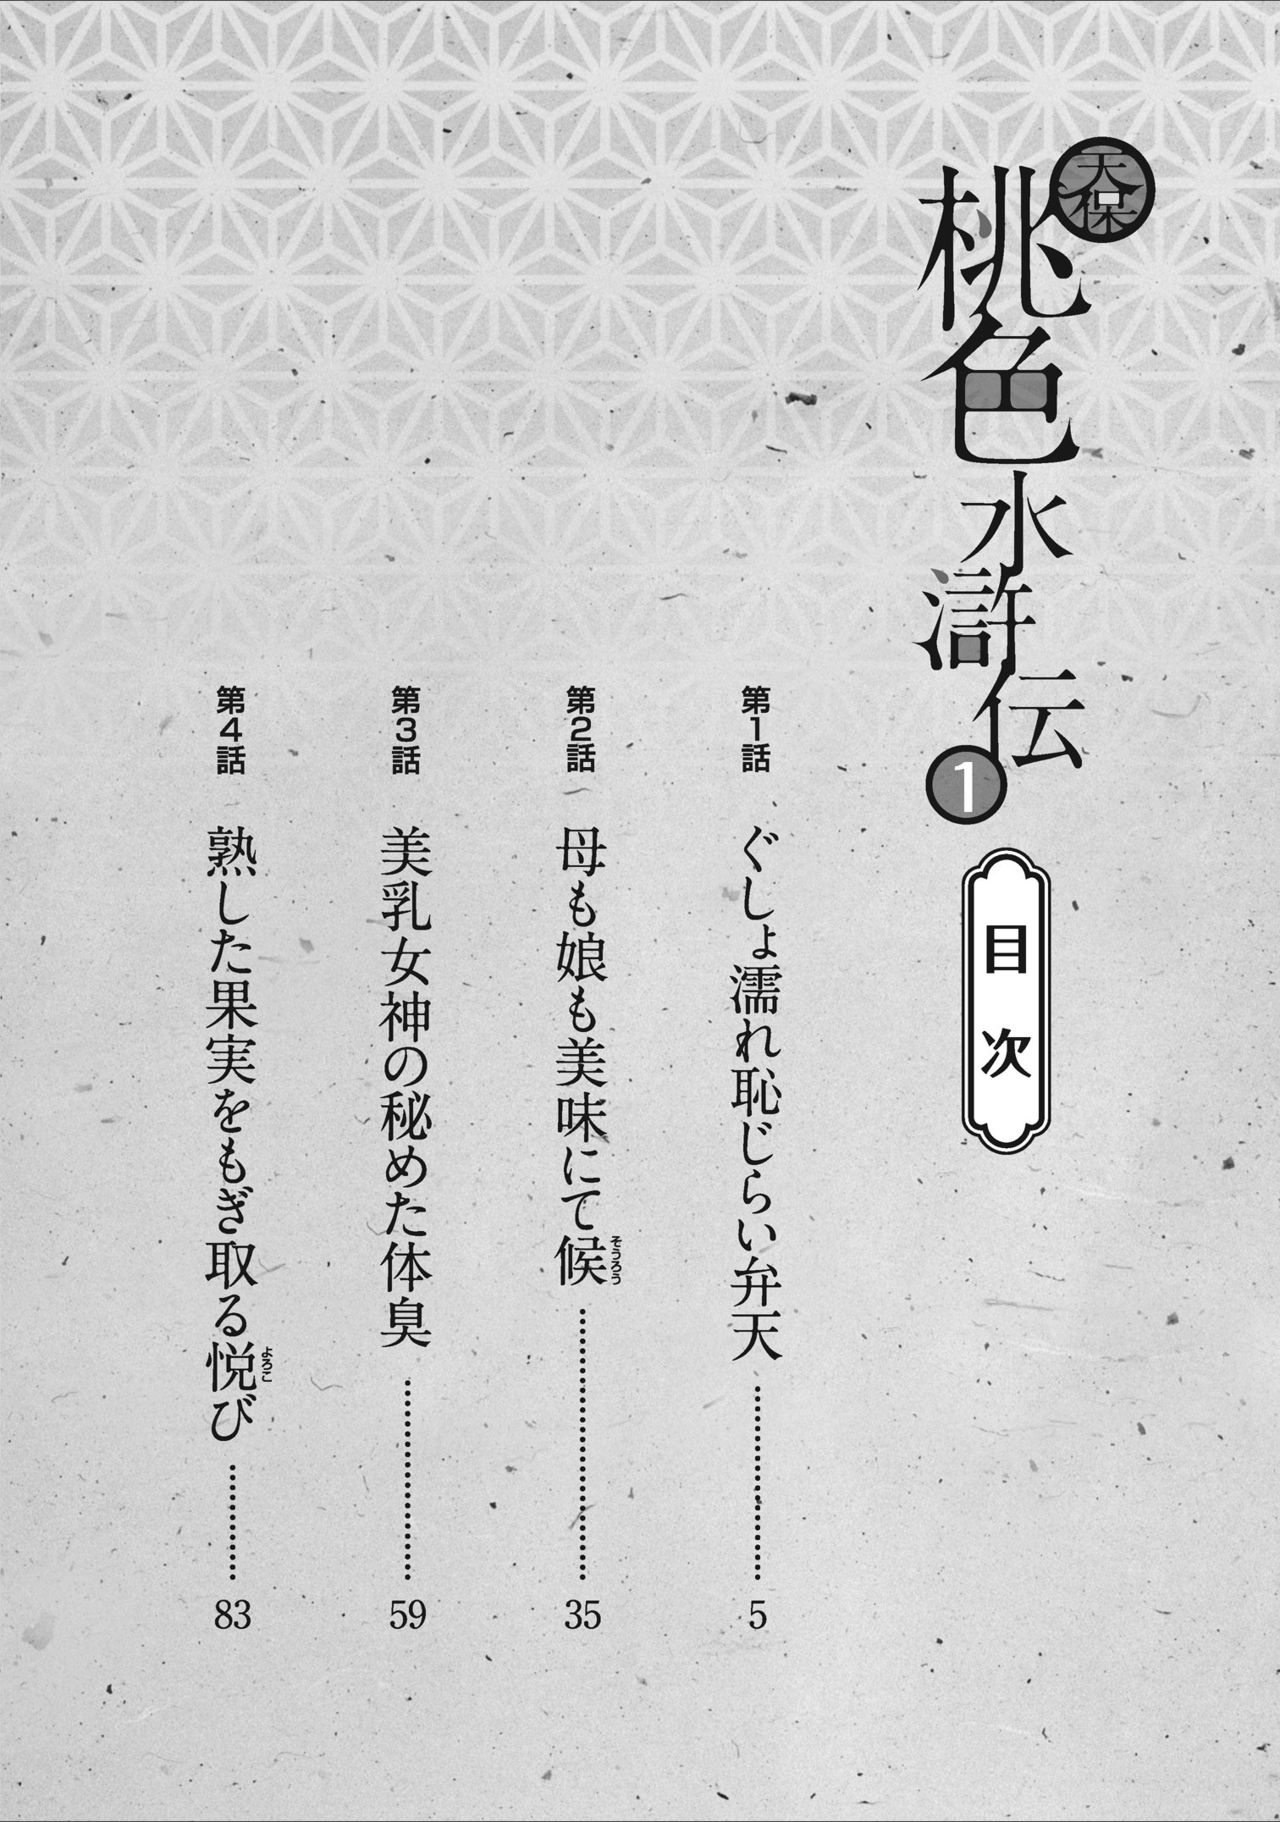 天保
桃色水滸伝
1
目次
第1話 ぐしょ濡れ恥じらい弁天 5
第2話 母も娘も美味にて候 35
そうろう
第3話 美乳女神の秘めた体臭 59
第4話 熟した果実をもぎ取る悦び 83
よろこ